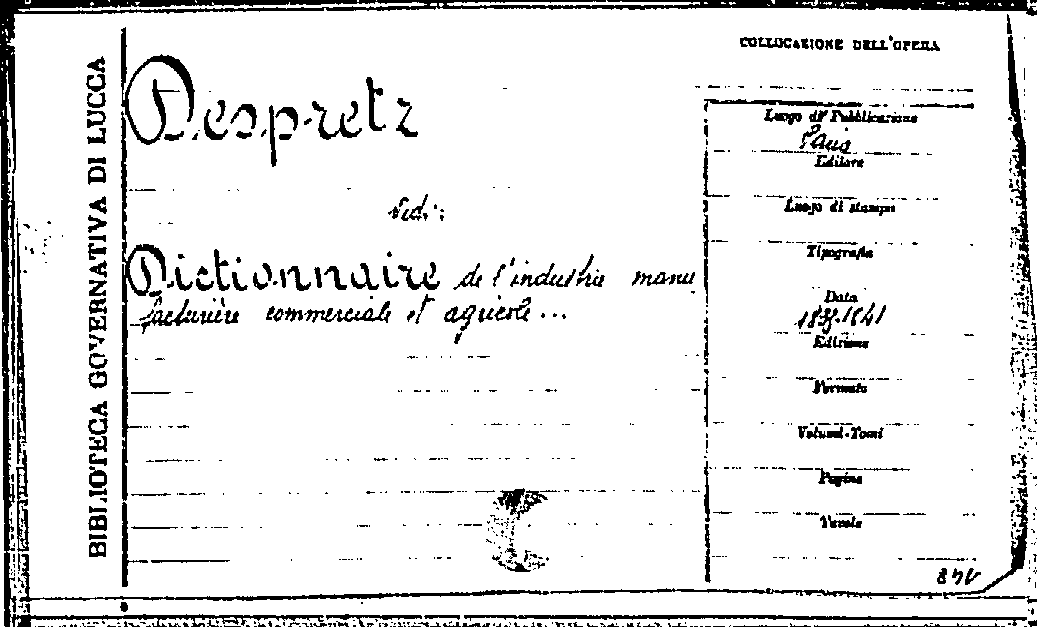 BIBLIOTECA GOVERNATIVA DI LUCCA
COLLOCAZIONE DELL'OPERA
Despretz
Vedi:
Dictionnaire de l'industrie manu
facturière commerciale et agricole...
Luogo di Pubblicazione
Paris
Editore
Luogo di stampa
Tipografia
Data
Edizione
Formato
Volumi-Tomi
Pagine
Tavole